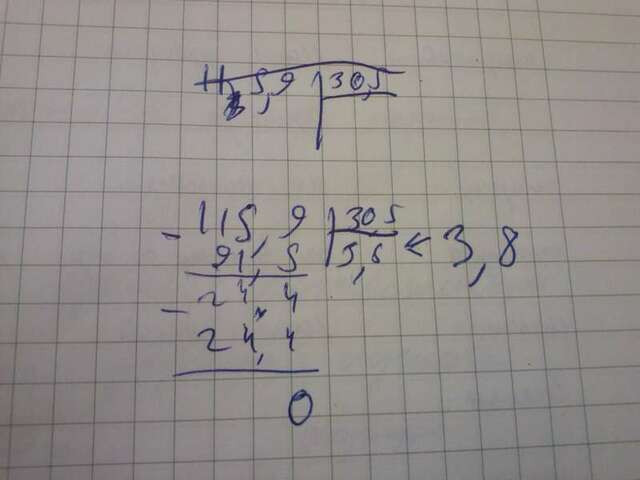 115,9 30,5
- 115,9 30,5
91,5 3,8 ← 3,8
- 24,4
24,4
0